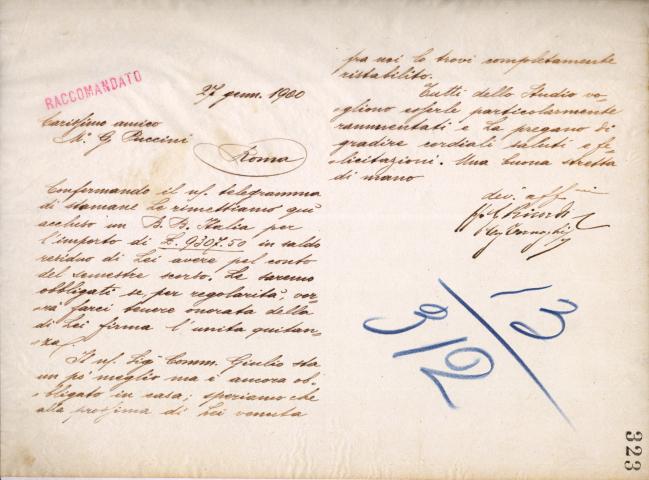 RACCOMANDATO
27 genn. 1900
Carissimo amico
Mº G Puccini
Roma
Confermando il ns/ telegramma
di stamane La rimettiamo qui
accluso un B. B. Italia per
l'importo di £. 9307.50 in saldo
residuo di Lei avere pel conto
del semestre scorso. Le saremo
obbligati se, per regolarità, vor
rà farci tenere onorata della
di Lei firma l'unita quitan-
za.
Il ns/ Sigr Comm. Giulio sta
un pò meglio ma è ancora ob-
bligato in casa; speriamo che
alla prossima di Lei venuta
fra noi lo trovi completamente
ristabilito.
Tutti dello Studio vo-
gliono esserle particolarmente
rammentati e La pregano di
gradire cordiali saluti e fe-
licitazioni. Una buona stretta
di mano
dev. aff
323